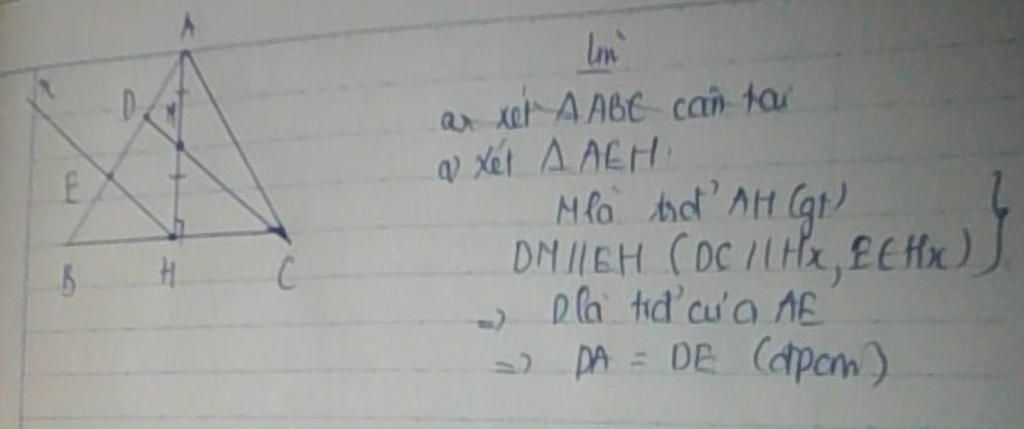 A
x
D
M
E
B H C
Lm`
a, xét ΔABE cân tại
a) xét ΔAEH.
M là trđ' AH (gt)
DM // EH (DC // Hx, E ∈ Hx) }
=> D là trđ' của AE
=> DA = DE (đpcm)